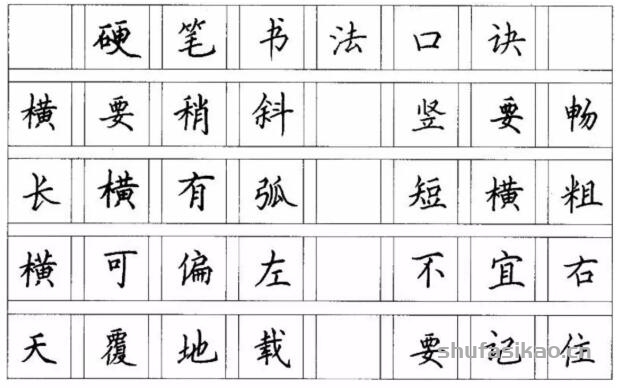 硬笔书法口诀
横要稍斜 竖要畅
长横有弧 短横粗
横可偏左 不宜右
天覆地载 要记住
shufasikao.cn